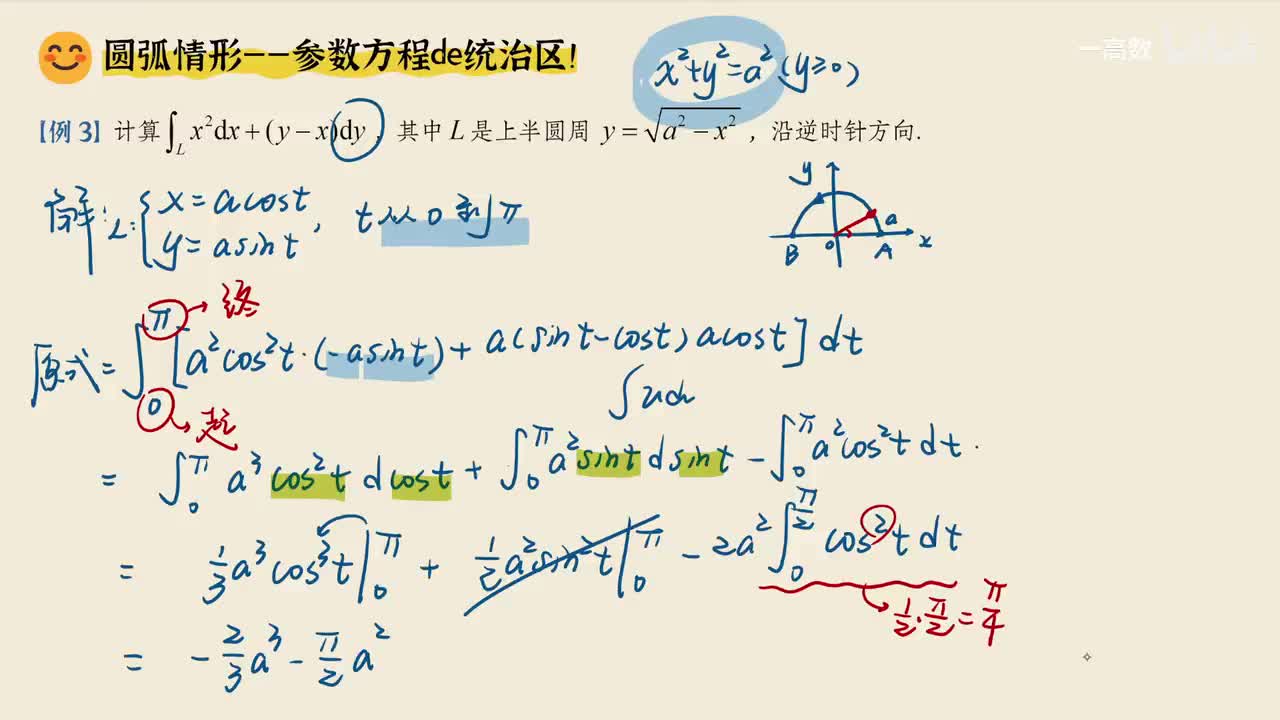 圆弧情形——参数方程de统治区!
x²+y²=a² (y≥0)
一高数
【例 3】计算∫_L x²dx+(y−x)dy,其中 L 是上半圆周 y=√(a²−x²),沿逆时针方向.
解: L: { x=acost
y=asint , t从0到π
y
a
B 0 A x
π→终
原式=∫_0^π [a²cos²t·(-asint)+a(sint-cost)acost]dt
0→起
∫udu
= ∫_0^π a³cos²t dcost + ∫_0^π a²sint dsint - ∫_0^π a²cos²t dt.
= 1/3 a³cos³t|_0^π + 1/2 a²sin²t|_0^π - 2a²∫_0^{π/2} cos²t dt
1/2·π/2=π/4
= -2/3 a³ - π/2 a²